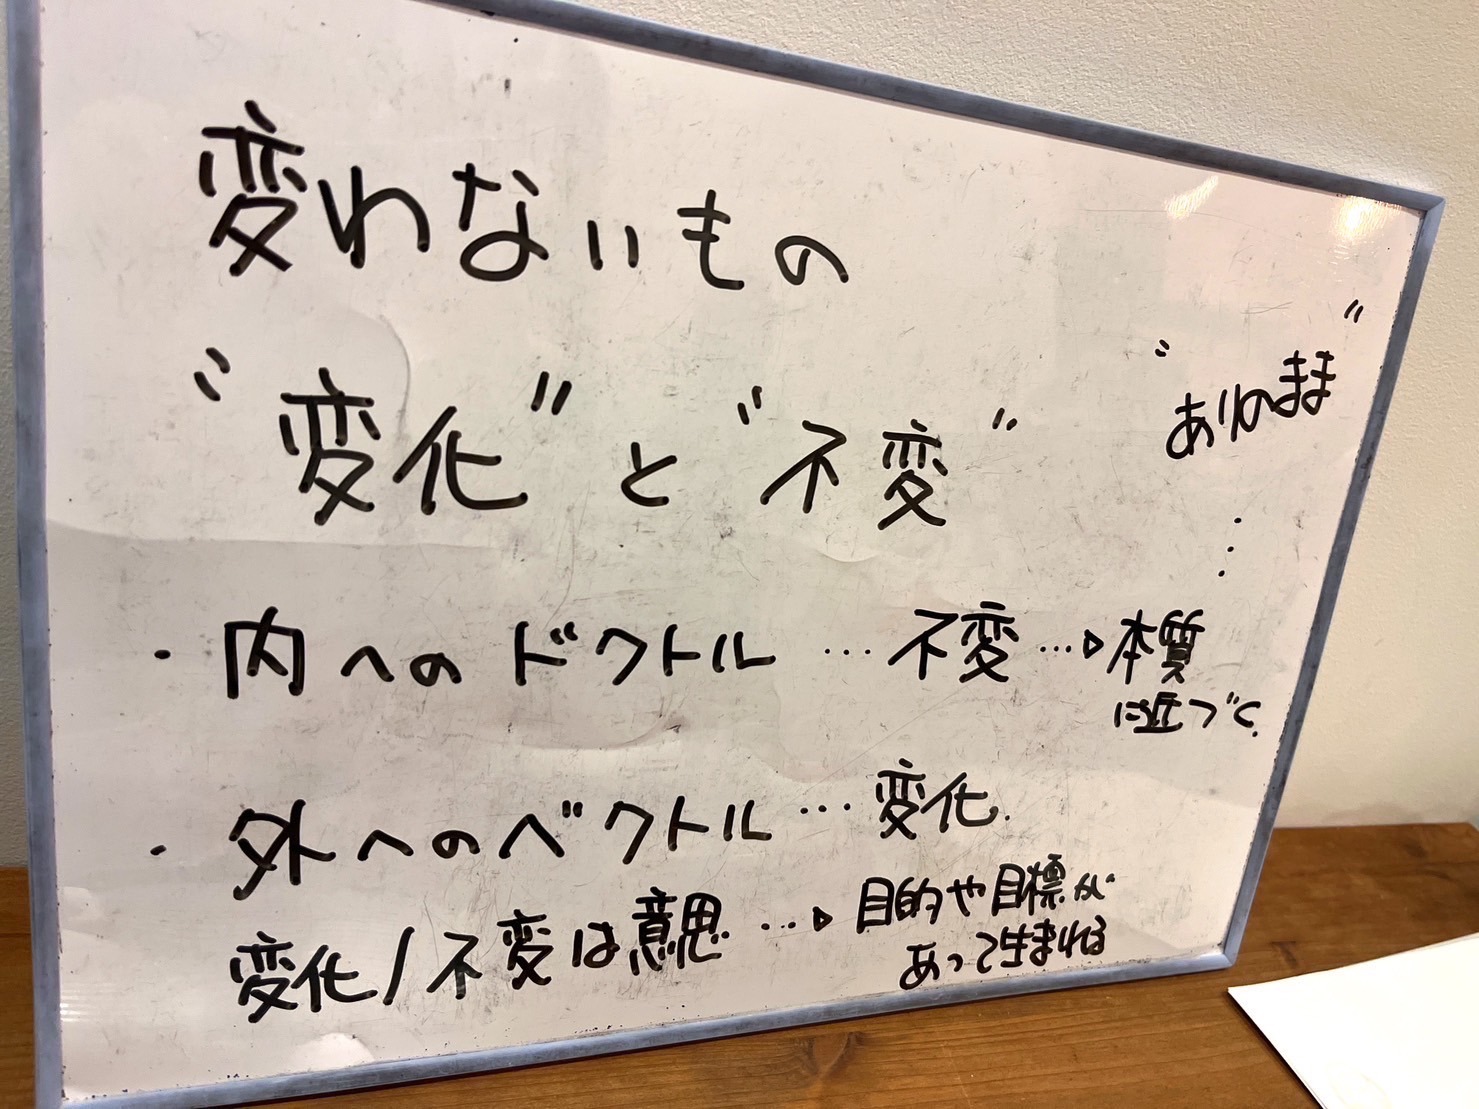 変わないもの
"変化"と"不変"
"ありのまま"
⋮
・内へのドクトル…不変…▷本質
に近づく.
・外へのベクトル…変化.
変化/不変は意思…▷目的や目標が
あって生まれる